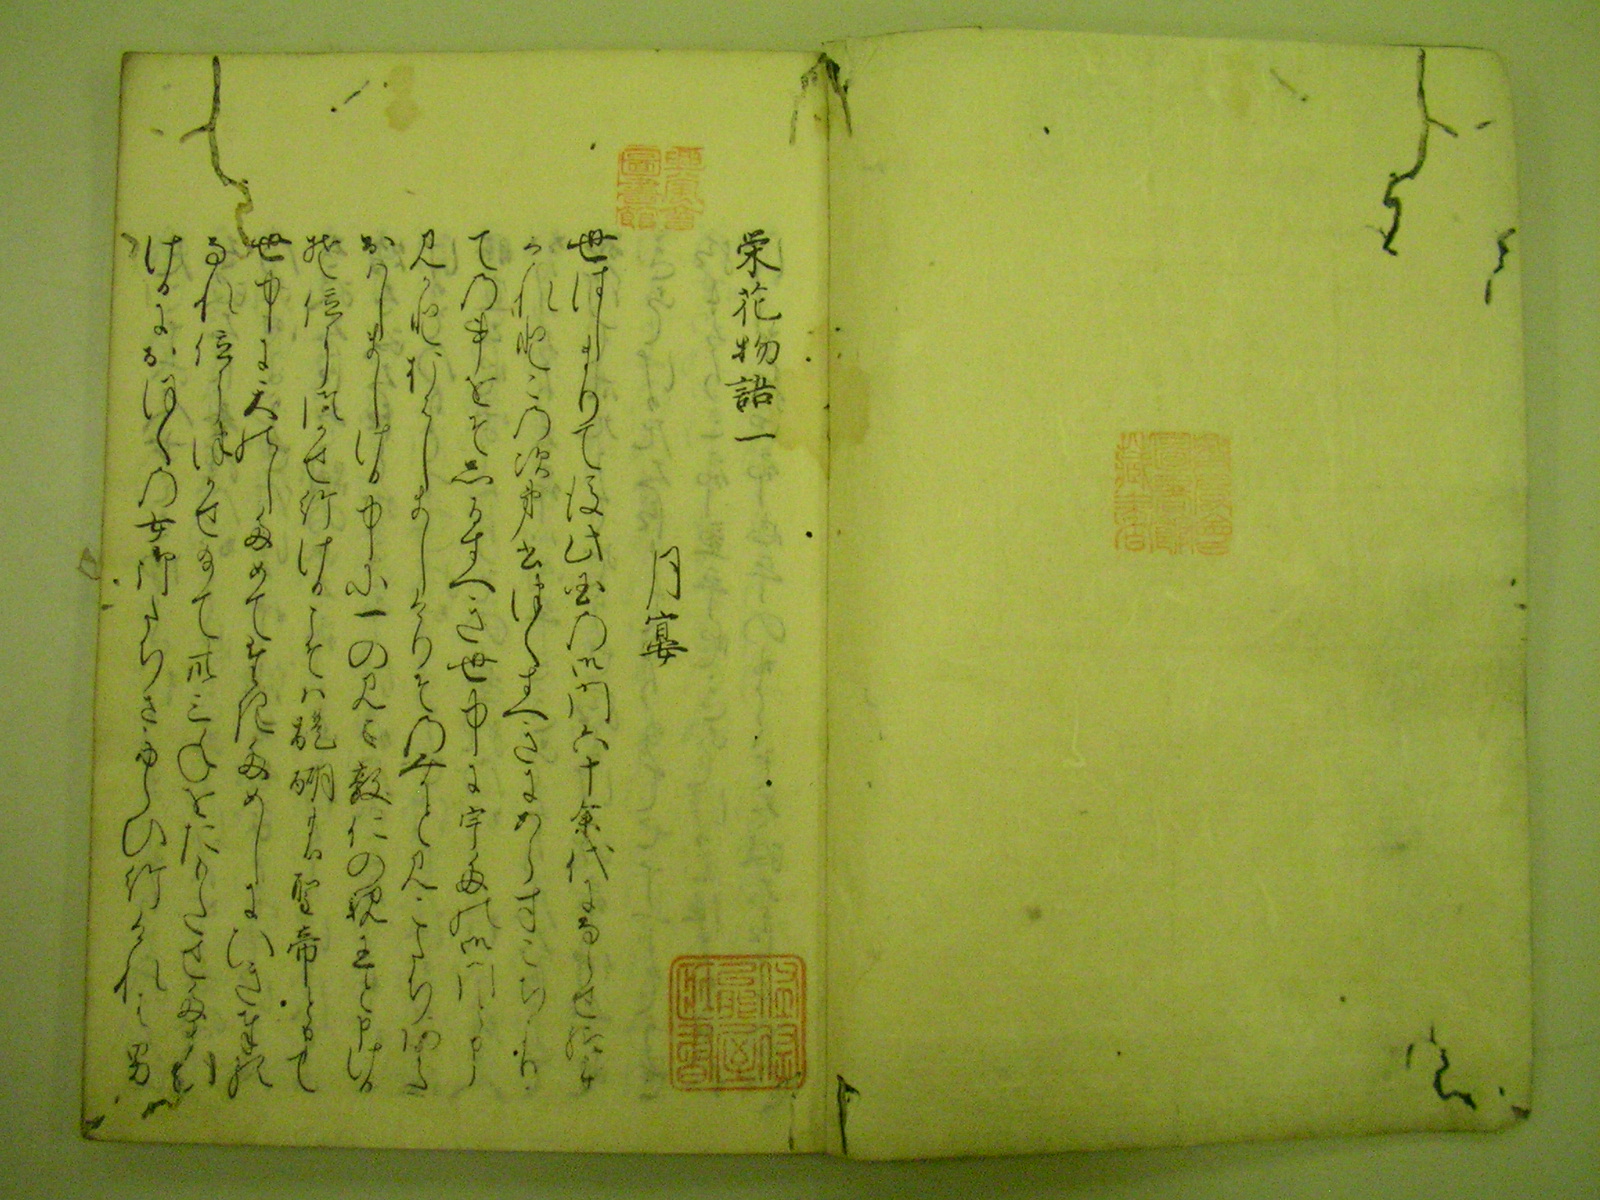 栄花物語一
月宴
世はしまりて後此国の御門六十余代にならせ給に
けれとこの次第書つくすへきにあらすこちよりて
の事をそしるすへき世中に宇多の御門と申
見かとおはしましけりそのみかとの見こたちあまた
おはしましける中に一の見こ敦仁の親王と申ける
そ位につかせ給けるこそは醍醐の聖帝と申て
世中に天の下めてたきためしにひき奉る
なれ位につかせ給て卅三年をたもたせ給ひ
けるにおほくの女御たちさふらひ給けれは男